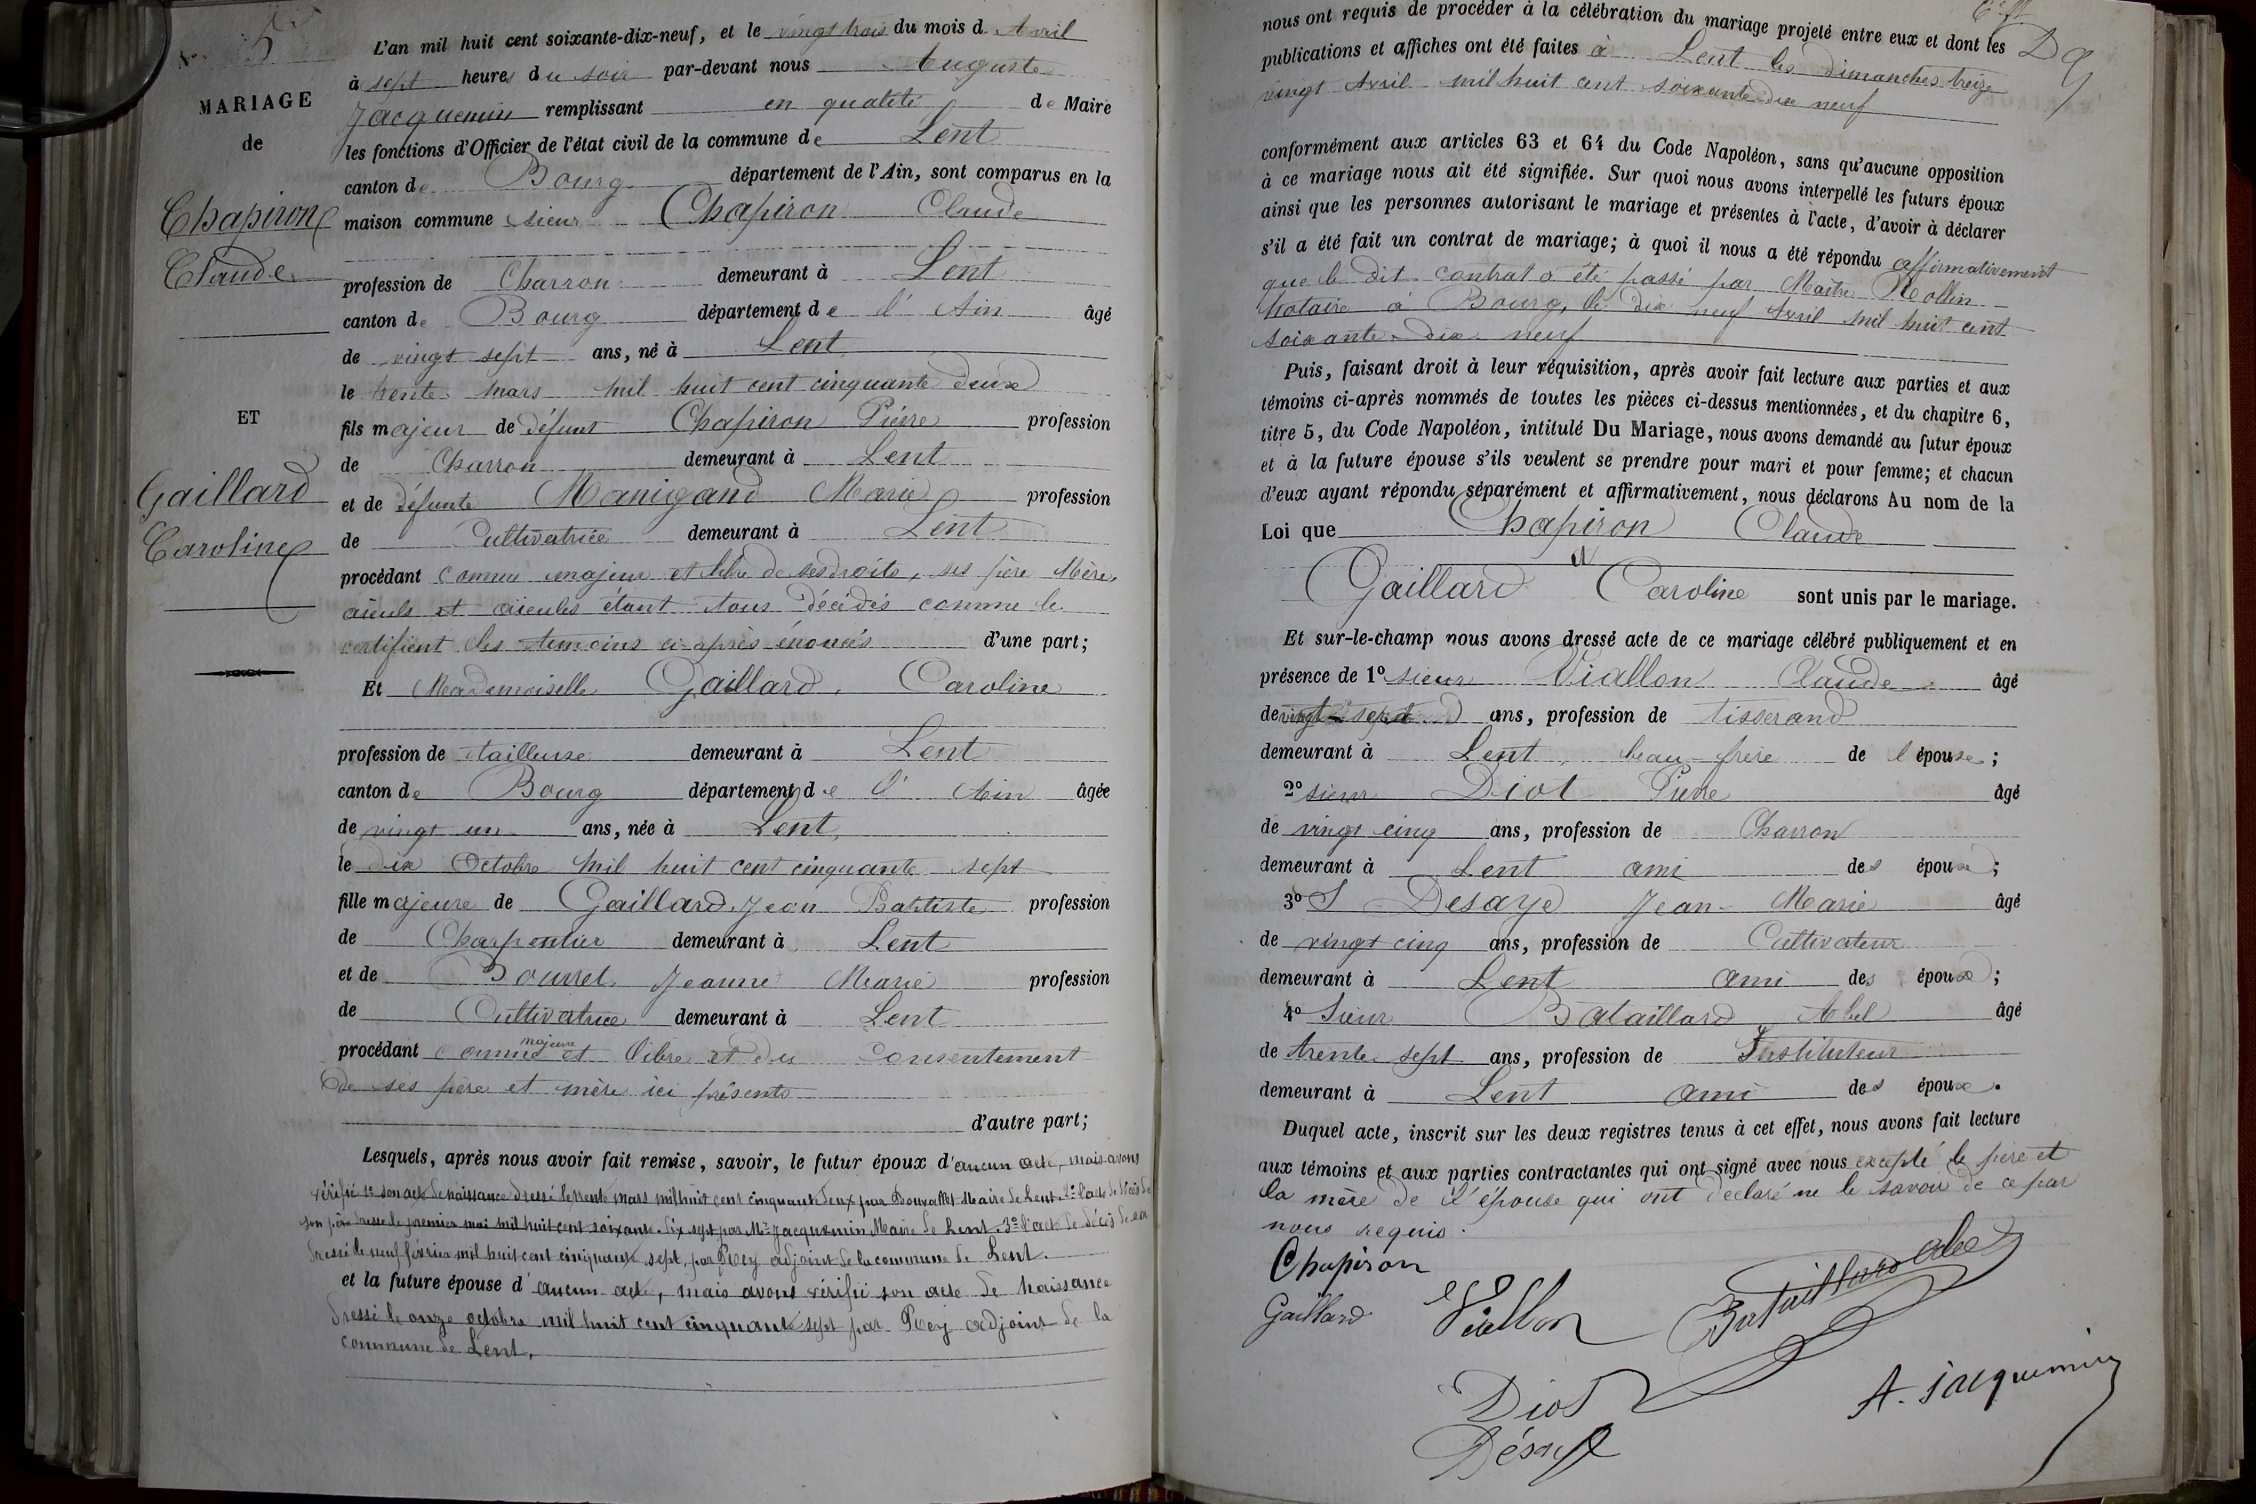 N° 5
MARIAGE
de
Chapiron
Claude
ET
Gaillard
Caroline
L'an mil huit cent soixante-dix-neuf, et le vingt trois du mois d Avril
à sept heures du soir par-devant nous Auguste
Jacquemin remplissant en qualité de Maire
les fonctions d'Officier de l'état civil de la commune de Lent
canton de Bourg département de l'Ain, sont comparus en la
maison commune sieur Chapiron Claude
profession de Charron demeurant à Lent
canton de Bourg département de l' Ain âgé
de vingt sept ans, né à Lent
le trente mars mil huit cent cinquante deux
fils majeur de défunt Chapiron Pierre profession
de Charron demeurant à Lent
et de défunte Manigand Marie profession
de Cultivatrice demeurant à Lent
procédant comme majeur et libre de ses droits, ses père Mère,
aïeuls et aïeules étant tous décédés comme le
certifient les témoins ci-après énoncés d'une part;
Et Mademoiselle Gaillard, Caroline
profession de tailleuse demeurant à Lent
canton de Bourg département de l' Ain âgée
de vingt un ans, née à Lent,
le dix Octobre mil huit cent cinquante sept
fille majeure de Gaillard Jean Baptiste profession
de Charpentier demeurant à Lent
et de Bourret Jeanne Marie profession
de Cultivatrice demeurant à Lent
procédant comme majeure et libre et du consentement
de ses père et mère ici présents
d'autre part;
Lesquels, après nous avoir fait remise, savoir, le futur époux d'aucun acte, mais avons
vérifié 1° son acte de naissance dressé le trente mars mil huit cent cinquante deux par Maire de Lent 2° l'acte de décès de
son père dressé le premier mai mil huit cent soixante dix sept par Mr Jacquemin Maire de Lent 3° l'acte de décès de sa
dressé le neuf février mil huit cent cinquante sept, par Rey adjoint de la commune de Lent.
et la future épouse d'aucun acte, mais avons vérifié son acte de naissance
dressé le onze octobre mil huit cent cinquante sept par Rey adjoint de la
commune de Lent.
nous ont requis de procéder à la célébration du mariage projeté entre eux et dont les
publications et affiches ont été faites à Lent les dimanches treize
vingt Avril mil huit cent soixante dix neuf
conformément aux articles 63 et 64 du Code Napoléon, sans qu'aucune opposition
à ce mariage nous ait été signifiée. Sur quoi nous avons interpellé les futurs époux
ainsi que les personnes autorisant le mariage et présentes à l'acte, d'avoir à déclarer
s'il a été fait un contrat de mariage; à quoi il nous a été répondu affirmativement
que le dit contrat a été passé par Maître Rollin
Notaire à Bourg, le dix neuf Avril mil huit cent
soixante-dix neuf
Puis, faisant droit à leur réquisition, après avoir fait lecture aux parties et aux
témoins ci-après nommés de toutes les pièces ci-dessus mentionnées, et du chapitre 6,
titre 5, du Code Napoléon, intitulé Du Mariage, nous avons demandé au futur époux
et à la future épouse s'ils veulent se prendre pour mari et pour femme; et chacun
d'eux ayant répondu séparément et affirmativement, nous déclarons Au nom de la
Loi que Chapiron Claude
et
Gaillard Caroline sont unis par le mariage.
Et sur-le-champ nous avons dressé acte de ce mariage célébré publiquement et en
présence de 1° sieur Viallon Claude âgé
de vingt sept ans, profession de tisserand
demeurant à Lent, beau-frère de l'épouse;
2° sieur Diot Pierre âgé
de vingt cinq ans, profession de Charron
demeurant à Lent ami des époux;
3° S Desaye Jean-Marie âgé
de vingt cinq ans, profession de Cultivateur
demeurant à Lent ami des époux;
4° Sieur Bataillard Abel âgé
de trente sept ans, profession de Instituteur
demeurant à Lent ami des époux.
Duquel acte, inscrit sur les deux registres tenus à cet effet, nous avons fait lecture
aux témoins et aux parties contractantes qui ont signé avec nous excepté le père et
la mère de l'épouse qui ont déclaré ne le savoir de ce par
nous requis.
Chapiron
Gaillard
Viallon
Bataillard Abel
Diot
A. Jacquemin